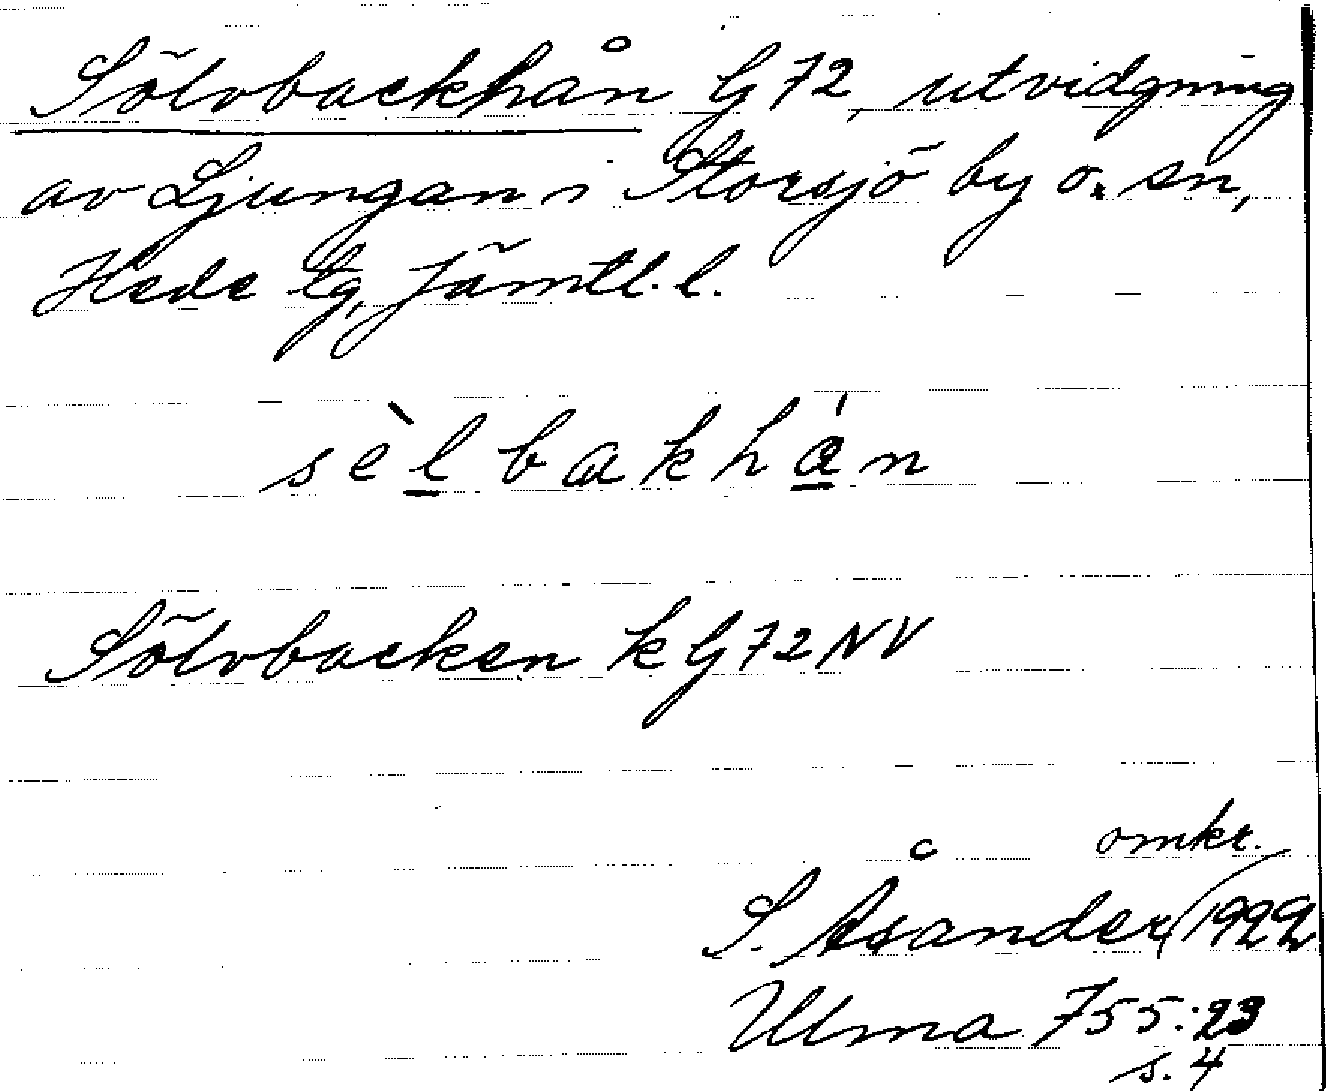 Sölvbackhån G72, utvidgning
av Ljungan i Storsjö by o. sn,
Hede tg, Jämtl. l.
sèlbakhán
Sölvbacken k G72NV
omkr.
S. Åsander, 1922
Ulma 755:23
s. 4